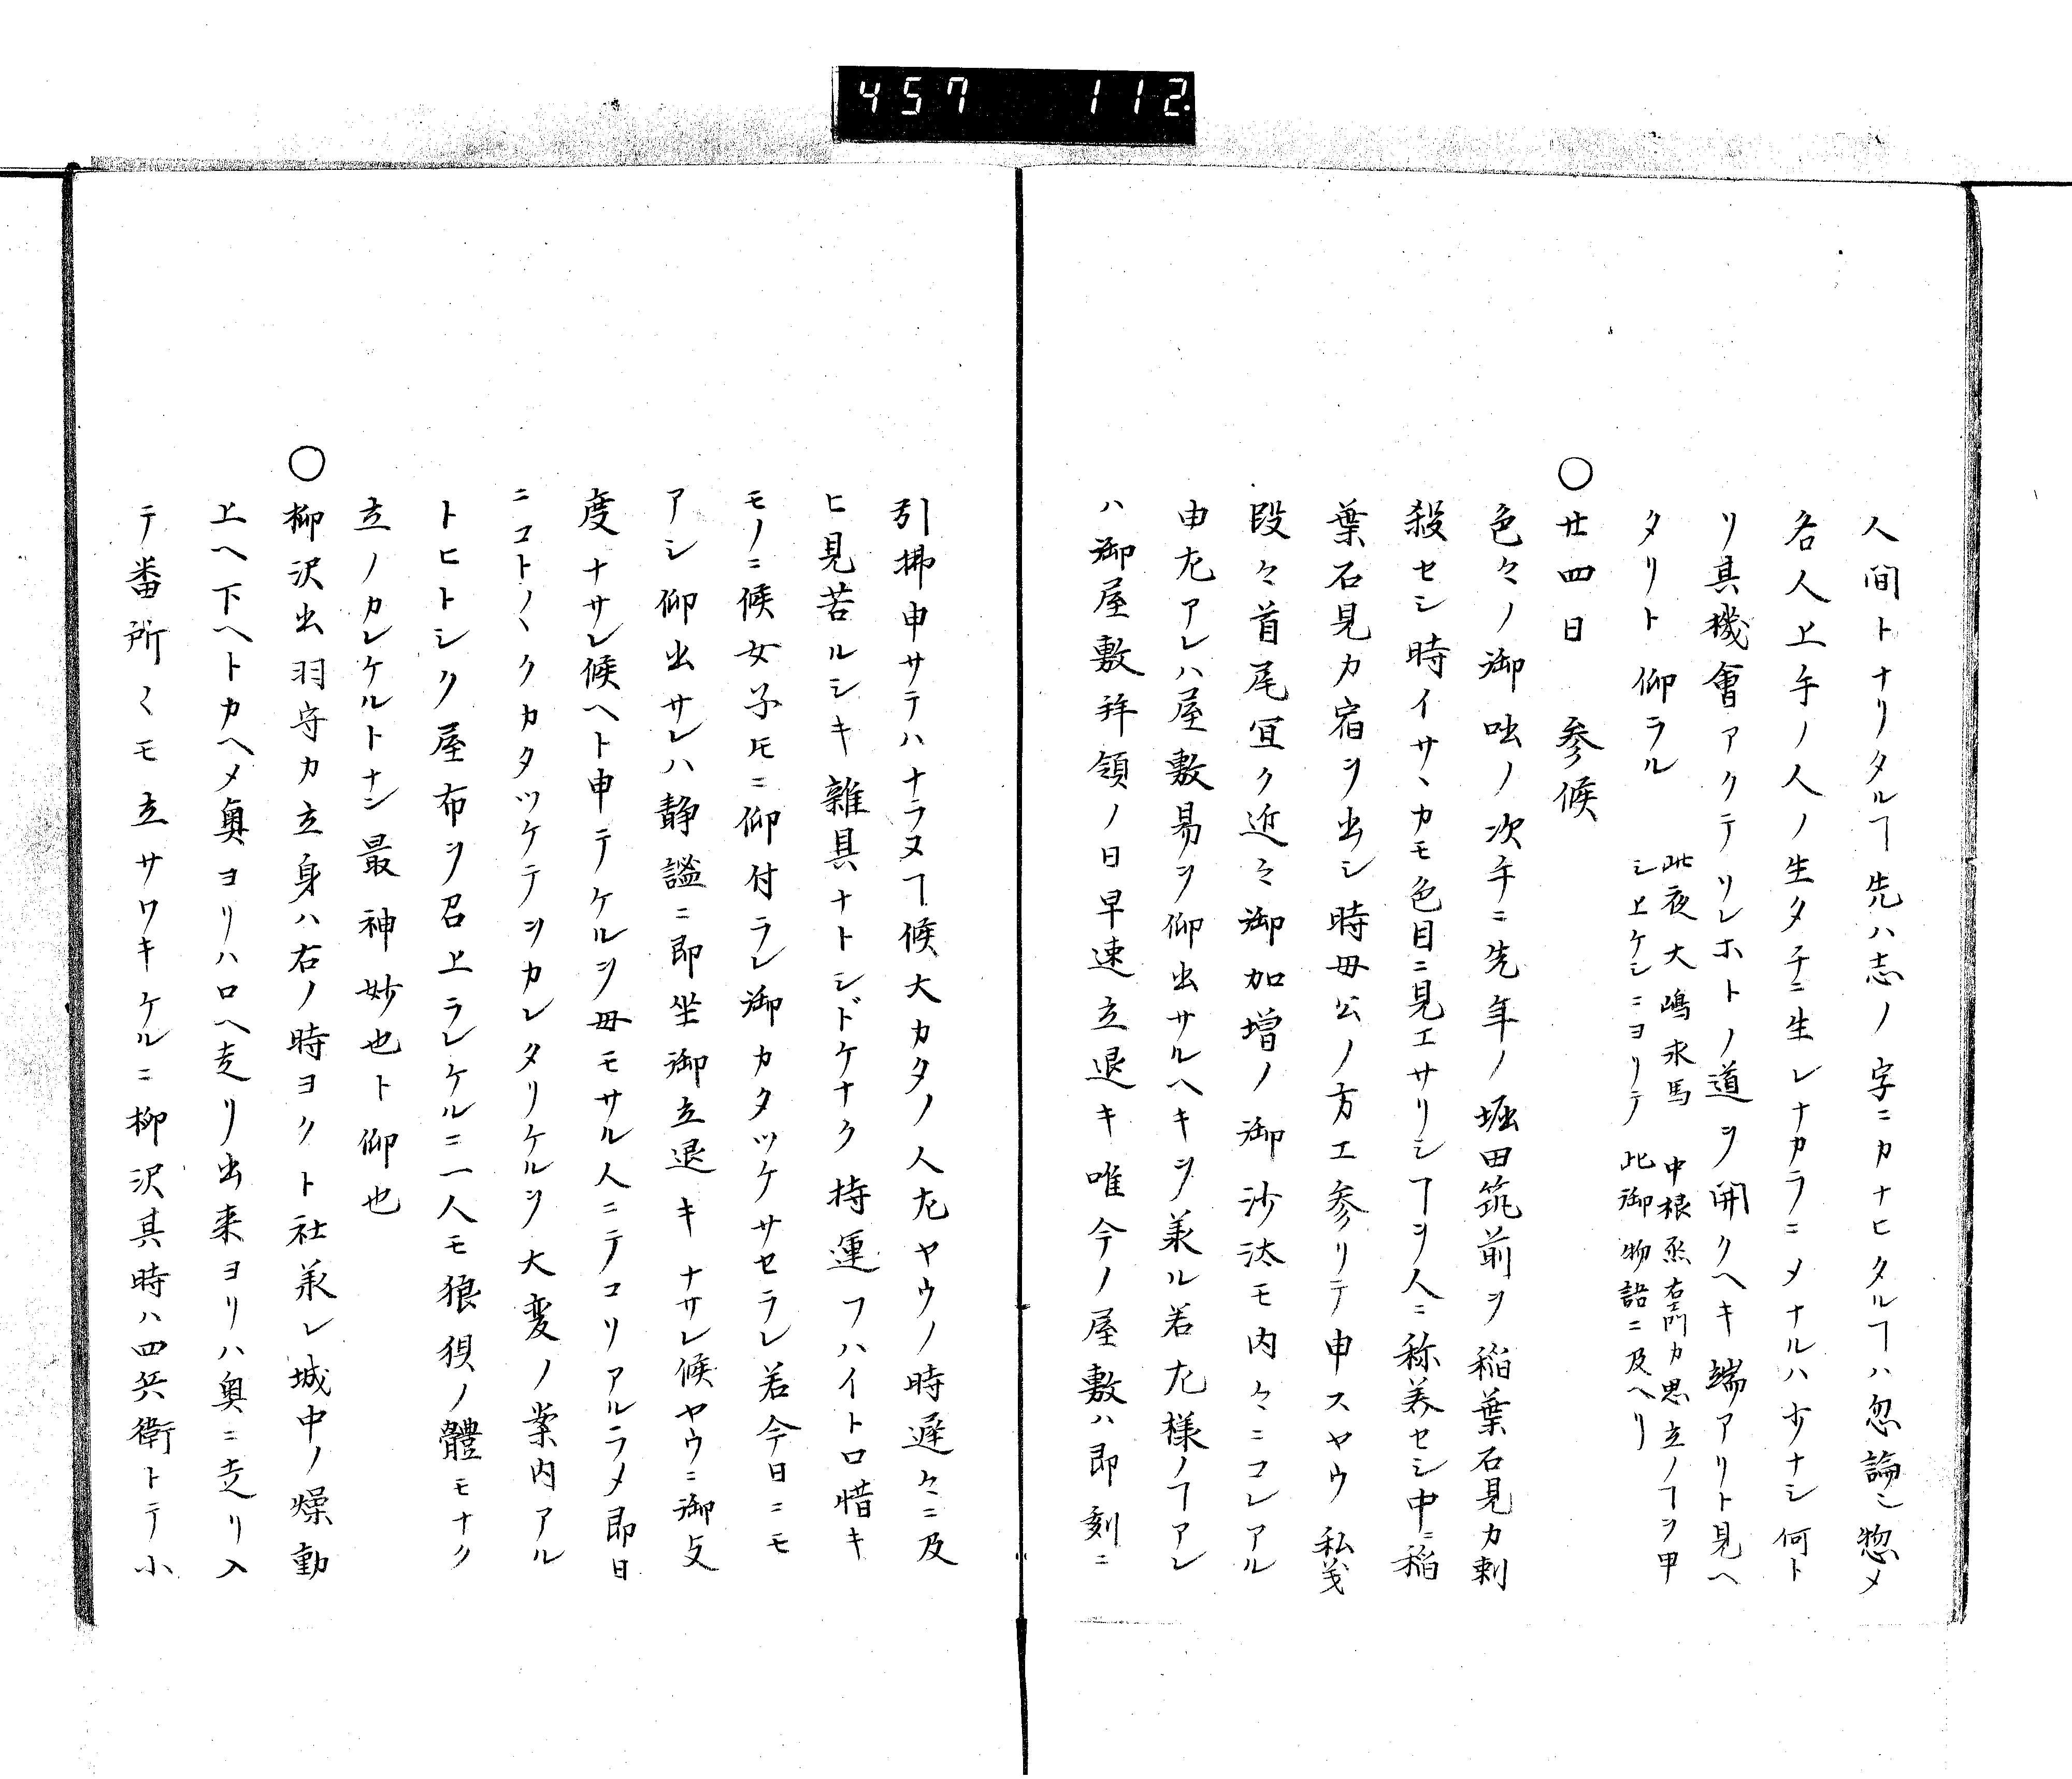 457 112
人間トナリタルヿ先ハ志ノ字ニカナヒタルヿハ忽論ニ惣〆
各人上手ノ人ノ生タチニ生レナカラニメナルハ少ナシ何ト
リ具機會アクテリレホトノ道ヲ開クヘキ端アリト見ヘ
タリト仰ラル
此夜大嶋求馬 中根丞右衛門カ思立ノヿヲ申
シ上ケシニヨリテ 此御物語ニ及ヘリ
〇廿四日 參候
色々ノ御咄ノ次手ニ先年ノ堀田筑前ヲ稲葉石見カ刺
殺セシ時イサヽカモ色目ニ見エサリシヿヲ人ニ称美セシ中ニ稲
葉石見カ宿ヲ出シ時母公ノ方エ参リテ申スヤウ私義
段々首尾冝ク近々御加増ノ御沙汰モ内々ニコレアル
由尤アレハ屋敷易ヲ仰出サルヘキヲ兼ル若尤様ノヿアレ
ハ御屋敷拜領ノ日早速立退キ唯今ノ屋敷ハ即刻ニ
引拂申サテハナラヌヿ候大カタノ人尤ヤウノ時遅々ニ及
ヒ見苦ルシキ雑具ナトシドケナク持運フハイト口惜キ
モノニ候女子𪜈ニ仰付ラレ御カタツケサセラレ若今日ニモ
アシ仰出サレハ静謐ニ即坐御立退キナサレ候ヤウニ御支
度ナサレ候ヘト申テケルヲ母モサル人ニテコリアルラメ即日
ニコト〱クカタツケテヲカレタリケルヲ大変ノ案内アル
トヒトシク屋布ヲ召上ラレケルニ一人モ狼狽ノ體モナク
立ノカレケルトナン最神妙也ト仰也
〇柳沢出羽守カ立身ハ右ノ時ヨクト社兼レ城中ノ燥動
上ヘ下ヘトカヘメ奥ヨリハ口ヘ走リ出来ヨリハ奥ニ走リ入
テ番所〱モ立サワキケルニ柳沢其時ハ四兵衛トテ小